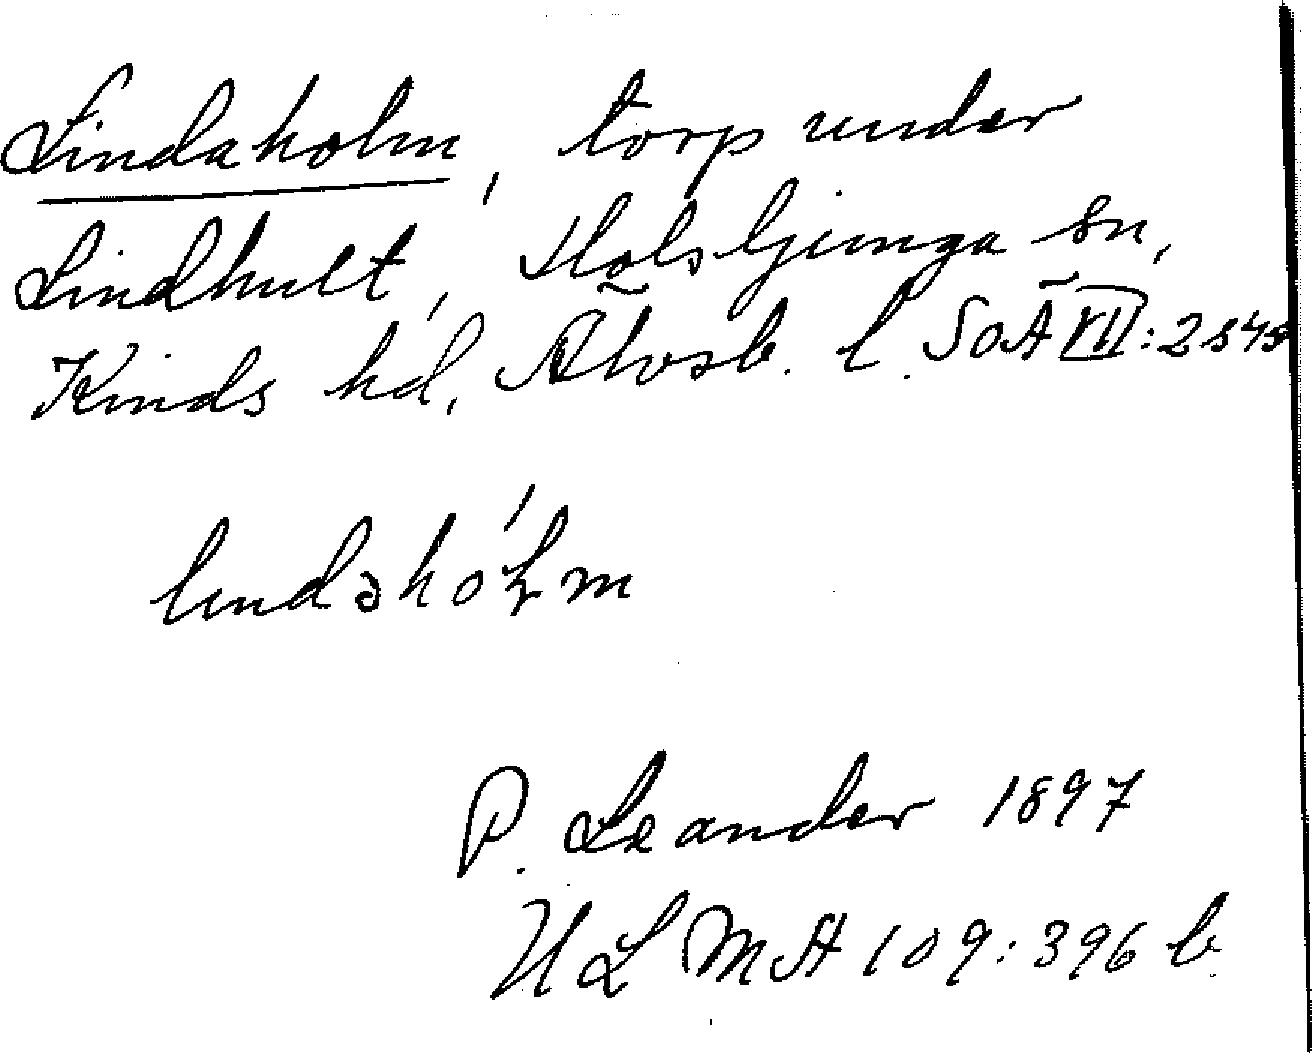 Lindaholm, torp under
Lindhult, Holsljunga sn,
Kinds hd, Älvsb. l. SOÄ VII:2 s 45
lindəhólm
P. Leander 1897
ULMA 109:396 b.